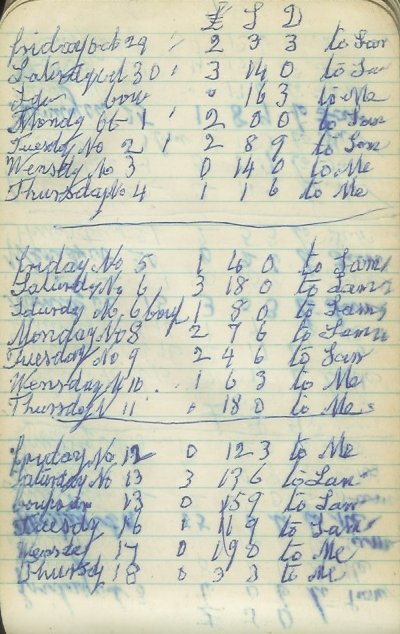 £ S D
Friday Oct 29 2 3 3 to Sam
Saturdy Oct 30 3 14 0 to Sam
bow 16 3 to Me
Mondy 1 2 0 0 to Sam
Tuesdy No 2 2 8 9 to Sam
Wensdy No 3 0 14 0 to Me
Thursday No 4 1 1 6 to Me
Friday No 5 1 4 0 to Sam
Saturdy No 6 3 18 0 to Sam
Saturdy No 6 bow 1 8 0 to Sam
Monday No 8 2 7 6 to Sam
Tuesday No 9 2 4 6 to Sam
Wensday N 10 1 6 3 to Me
Thursday N 11 18 0 to Me
Friday No 12 0 12 3 to Me
Saturday No 13 3 13 6 to Sam
13 0 15 9 to Sam
Tuesdy 16 1 11 9 to Sam
Wensdy 17 0 19 0 to Me
Thursdy 18 0 3 3 to Me